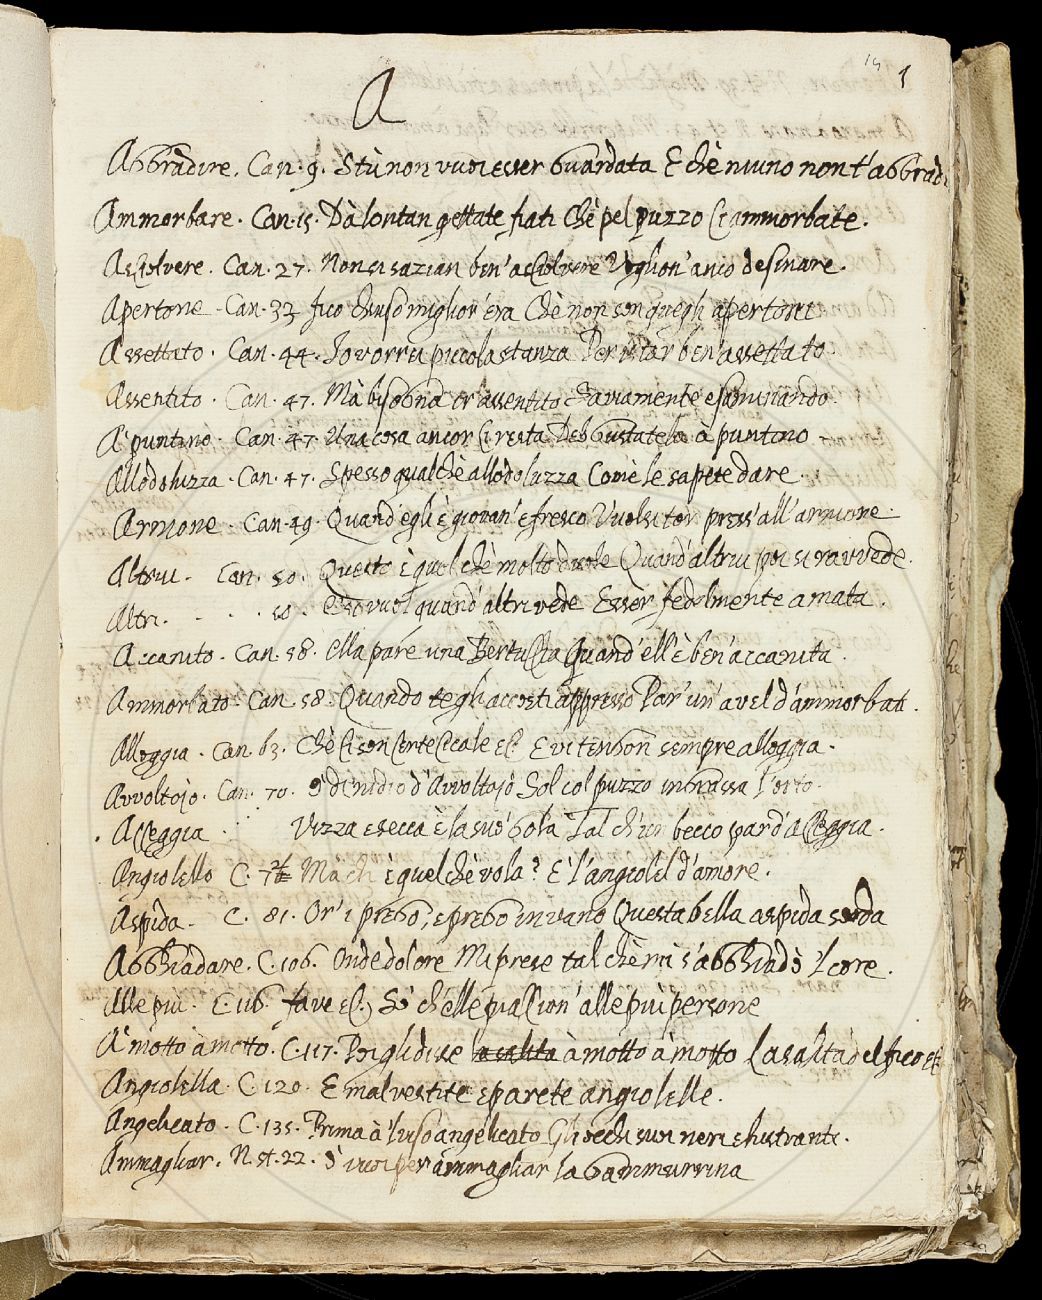 14 1
A
Abbradire. Can. 9. Stù non vuoi esser Guardata E chè niuno non t'abbradi
Ammorbare. Can. 15. Dà lontan gettate fiati Chè pel puzzo ci ammorbate.
Asciolvere. Can. 27. Non si sazian ben' asciolvere Voglion' anco desinare.
Apertone. Can. 33 fico chiuso miglior' era Chè non son quegli apertoni
Assettato. Can. 44. Io vorrei piccola stanza Per istar ben' assettato.
Assentito. Can. 47. Mà bisogna ir' assentito Saviamente esaminando.
A' puntino. Can. 47. Una cosa ancor ci resta Deh Gustatela à puntino
Allodoluzza. Can. 47. Spesso qualchè allodoluzza Comè le sapete dare.
Arnione. Can. 49. Quand'egli è giovan' e fresco Vuolsi tor press'all' arnione.
Altrui. Can. 50. Questo è quel chè molto duole Quand'altrui poi si ravvede.
Altri. . . . 50. E so vuoi quand'altri vede Esser fedelmente amata.
Accanito. Can. 58. Ella pare una Bertuccia Quand'ell'è ben'accanita.
Ammorbato. Can. 58. Quando te gli accosti appresso Par' un' avel d'ammorbati.
Alleggia. Can. 63. Chè ci son certe Cicale &c. E vi tengon sempre alleggia.
Avvoltojo. Can. 70. d'Avvoltojo Sol col puzzo ingrassa l'orto.
. Acceggia . . Vizza e secca è la suo' gola Tal ch'un becco par d'acceggia.
Angiolello C. Mà ch' è quel chè vola? E' l'angiolel d'amore.
Aspida. C. 81. Or' i priego, e priego in vano Questa bella aspida sorda
Abbriadare. C. 106. Ond'è dolore Mi prese tal chè mi s'abbriadò 'l core.
Alle piu. C. 116. fave &c. Sò ch'elle piaccion' alle più persone
A' motto à motto. C. 117. Poi gli disse la salita à motto à motto La salita del fico &c.
Angiolella. C. 120. E mal vestite e parete angiolelle.
Angelicato. C. 135. Prima à 'l viso angelicato Gli occhi suoi neri e lustranti.
Ammagliar. N. st. 22. per ammagliar la gammurrina